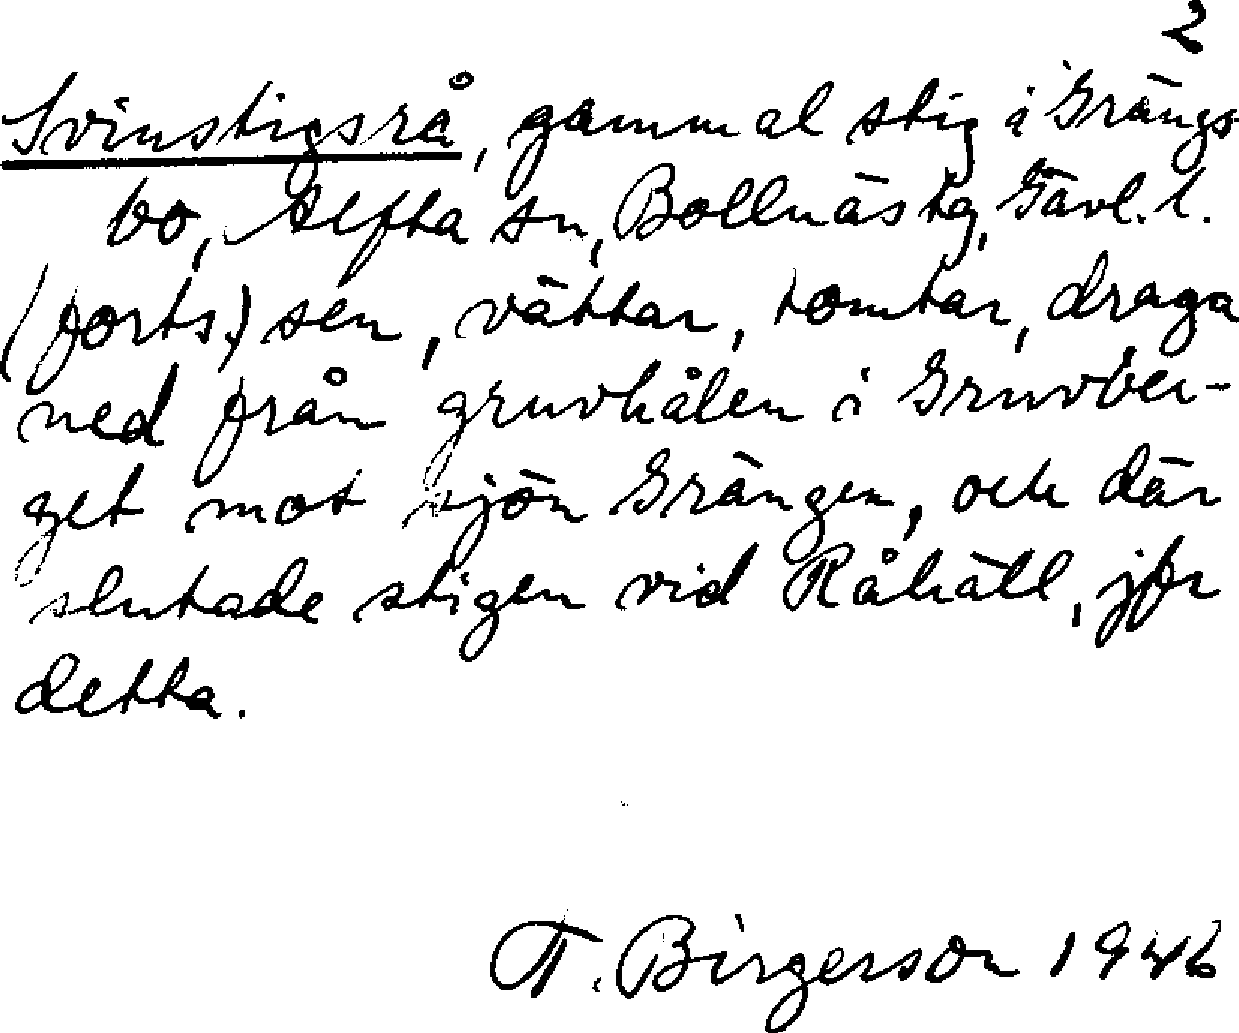 2
Svinstigsrå, gammal stig i Grängs
bo, Alfta sn, Bollnäs tg, Gävl. l.
(forts.) sen, vättar, tomtar, draga
ned från gruvhålen i Gruvber-
get mot sjön Grängen, och där
slutade stigen vid Råhäll, jfr
detta.
T. Birgerson 1946